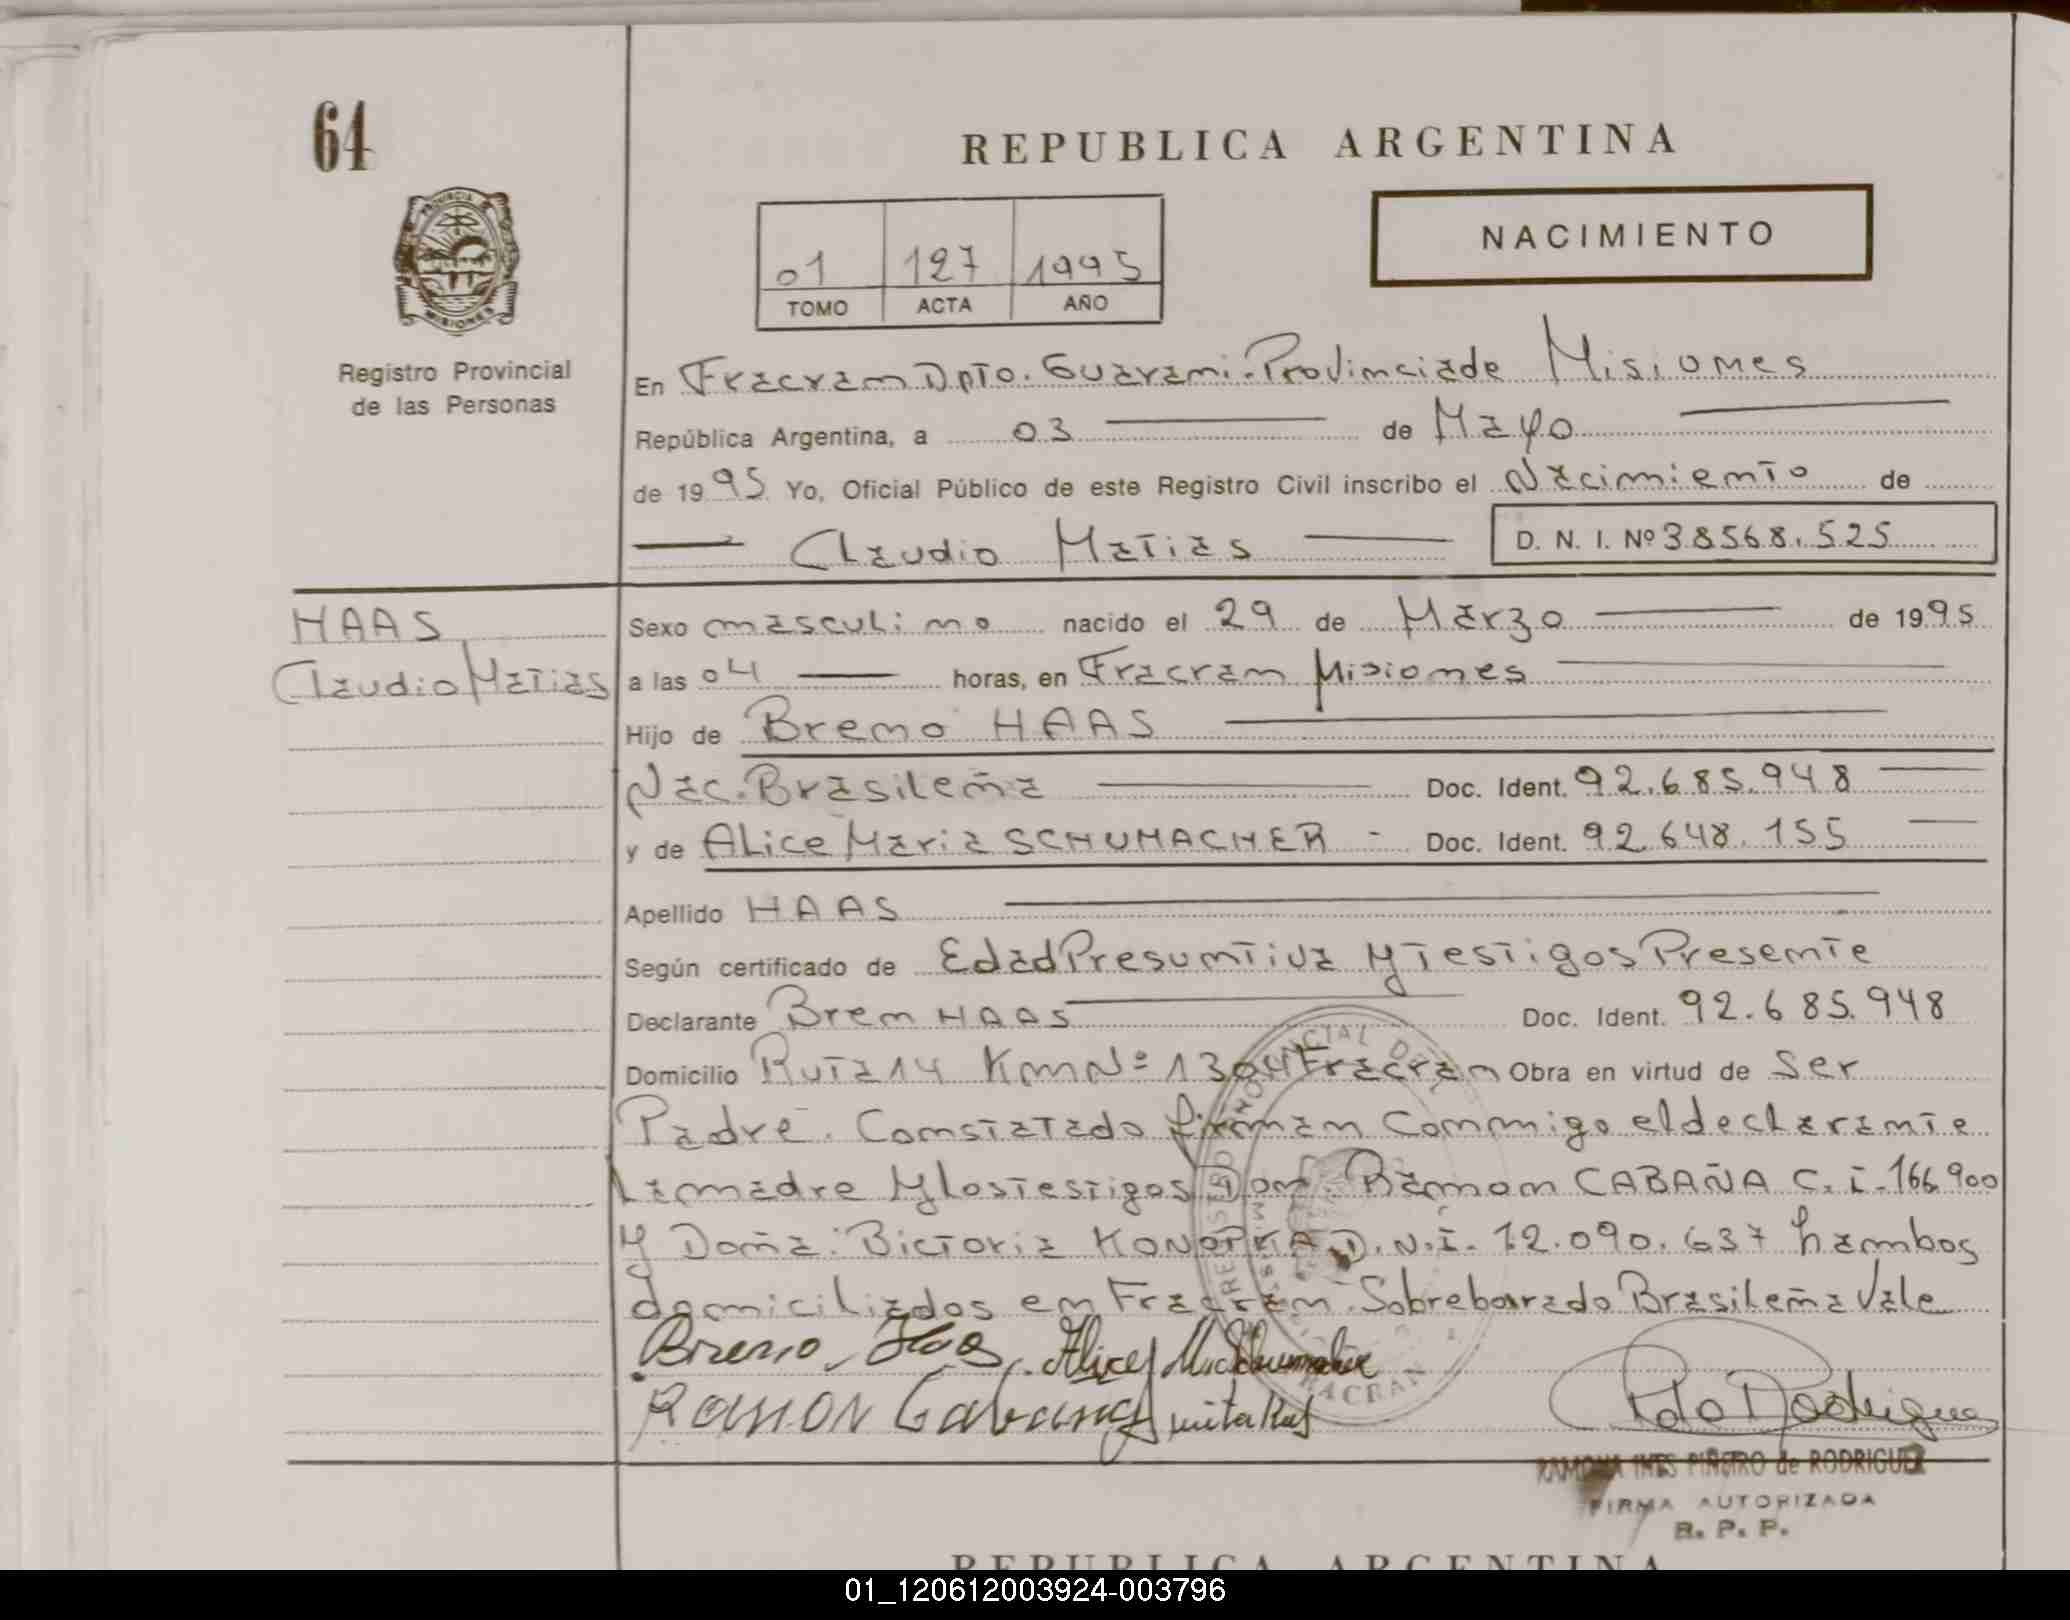 64
REPUBLICA ARGENTINA
PROVINCIA DE
MISIONES
Registro Provincial
de las Personas
NACIMIENTO
01 127 1995
TOMO ACTA AÑO
En Fracran Dpto. Guarani. Provincia de Misiones
República Argentina, a 03 de Mayo
de 1995 Yo, Oficial Público de este Registro Civil inscribo el Nacimiento de
Claudio Matias D. N. I. Nº 38568.525
HAAS
Claudio Matias
Sexo masculino nacido el 29 de Marzo de 1995
a las 04 horas, en Fracran Misiones
Hijo de Breno HAAS
Nac. Brasileña Doc. Ident. 92.685.948
y de Alice Maria SCHUMACHER - Doc. Ident. 92.648.155
Apellido HAAS
Según certificado de Edad Presuntiva y Testigos Presente
Declarante Bren HAAS Doc. Ident. 92.685.948
Domicilio Ruta 14 Km Nº 1304 Fracran Obra en virtud de Ser
Padre. Constatado firman Conmigo el declarante
La madre y los testigos Don Ramon CABAÑA C. I. 166.900
y Doña: Bictoria KONOPKA D.N.I. 12.090.637 hambos
domiciliados en Fracran. Sobreborrado Brasileña Vale
Breno Haas Alice M. Schumacher
Ramon Cabana
Rodrigue
RAMONA INES PIÑEIRO de RODRIGUEZ
FIRMA AUTORIZADA
R. P. P.
REPUBLICA ARGENTINA
01_120612003924-003796